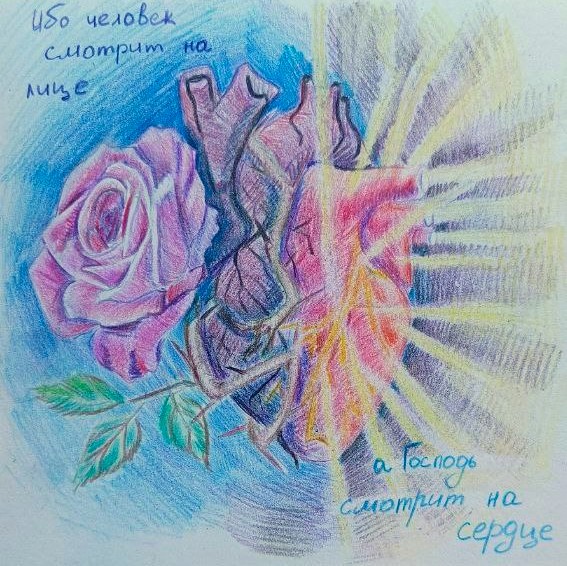 ибо человек
смотрит на
лице
а Господь
смотрит на
сердце